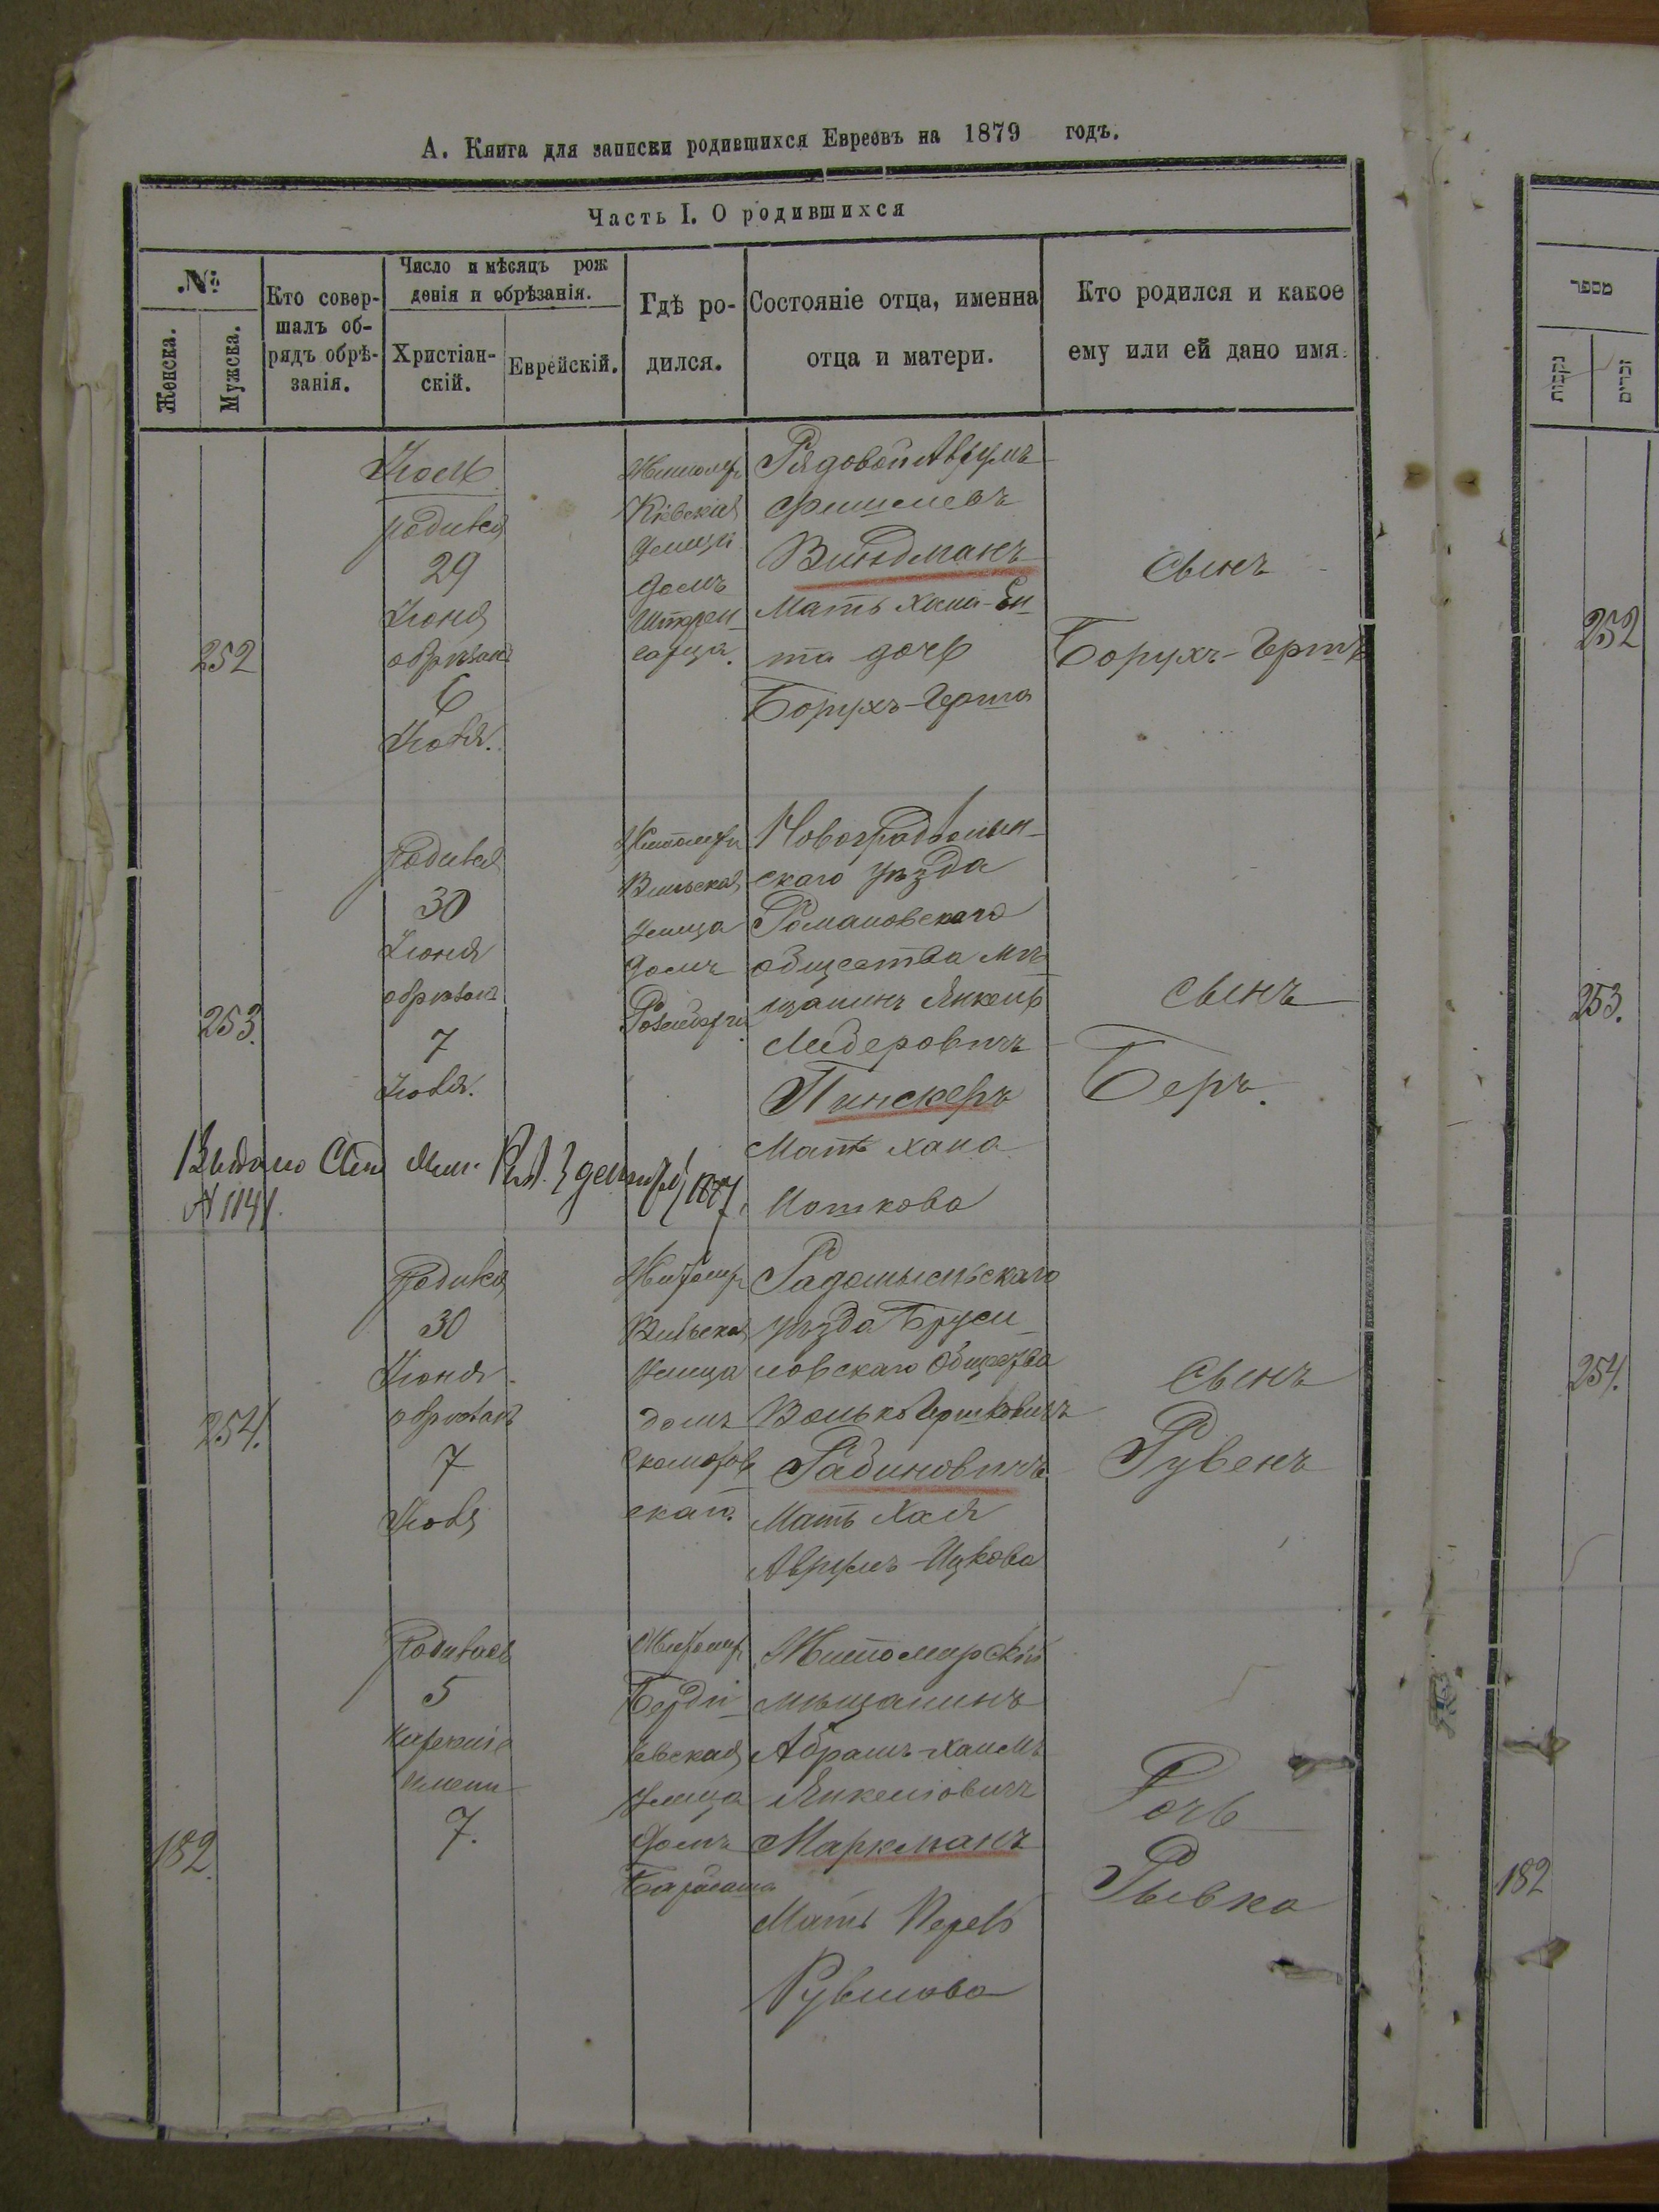 А. Книга для записки родившихся Евреевъ на 1879 годъ.
Часть I. О родившихся
№
Женска.
Мужска.
Кто совер-
шалъ об-
рядъ обрѣ-
занія.
Число и мѣсяцъ рож
денія и обрѣзанія.
Христіан-
скій.
Еврейскій.
Гдѣ ро-
дился.
Состояніе отца, именна
отца и матери.
Кто родился и какое
ему или ей дано имя.
252
Іюль
родився
29
Іюня
обрѣзанъ
6
Іюля.
Житомиръ
Кіевская
улица
домъ
Рядовой Аврумъ
Фишелевъ
Виндманъ
Мать Хана-Ен-
та дочь
Борухъ-Герша
сынъ
Борухъ-Гершъ
253.
Родився
30
Іюня
обрѣзанъ
7
Іюля.
Житомиръ
Вильская
улица
домъ
Новоградволын-
скаго уѣзда
Романовскаго
общества мѣ-
щанинъ Янкель
Лидеровичъ
Пинскеръ
Мать Хана
Моткова
сынъ
Беръ.
Выдано
1141.
254.
Родився
30
Іюня
обрѣзанъ
7
Іюля
Житомиръ
Вильская
улица
домъ
скаго.
Радомысльскаго
уѣзда Бруси-
ловскаго Общества
Волько Гершковичъ
Рабиновичъ
Мать Хая
Аврумъ-Ицкова
сынъ
Рувенъ
182.
Родилась
5
нареченіе
имени
7.
Житомиръ
Берди-
чевская
улица
домъ
Житомирскій
мѣщанинъ
Абрамъ-Хаимъ
Янкелiовичъ
Маркманъ
Мать Перель
Рувинова
Дочь
Рывка
מספר
נקבות
זכרים
252
253.
254.
182